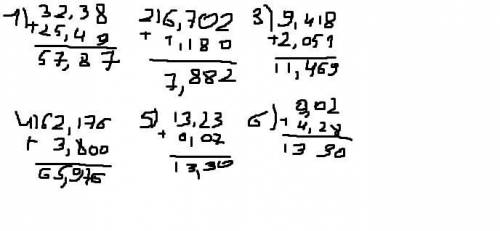 1) 32,38 2) 6,702 3) 9,418
+25,49 + 1,180 +2,051
57,87 7,882 11,469
4) 62,176 5) 13,23 6)
+ 3,800 + 0,07 + 4,28
65,976 13,30 13 30